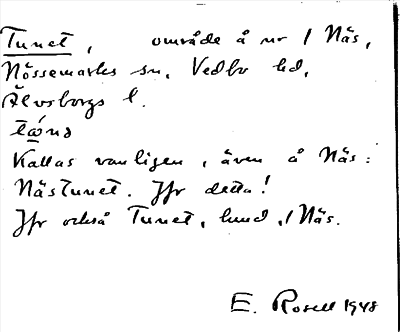 Tunet, område å nr 1 Näs,
Nössemarks sn, Vedbo hd,
Älvsborgs l.
Kallas vanligen, även å Näs:
Nästunet. Jfr detta!
Jfr också Tunet, lund, 1 Näs.
E. Rosell 1948